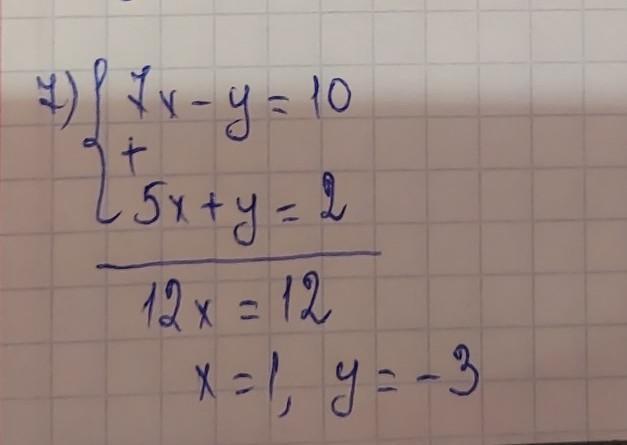 7) { 7x - y = 10
+
5x + y = 2
12x = 12
x = 1, y = -3